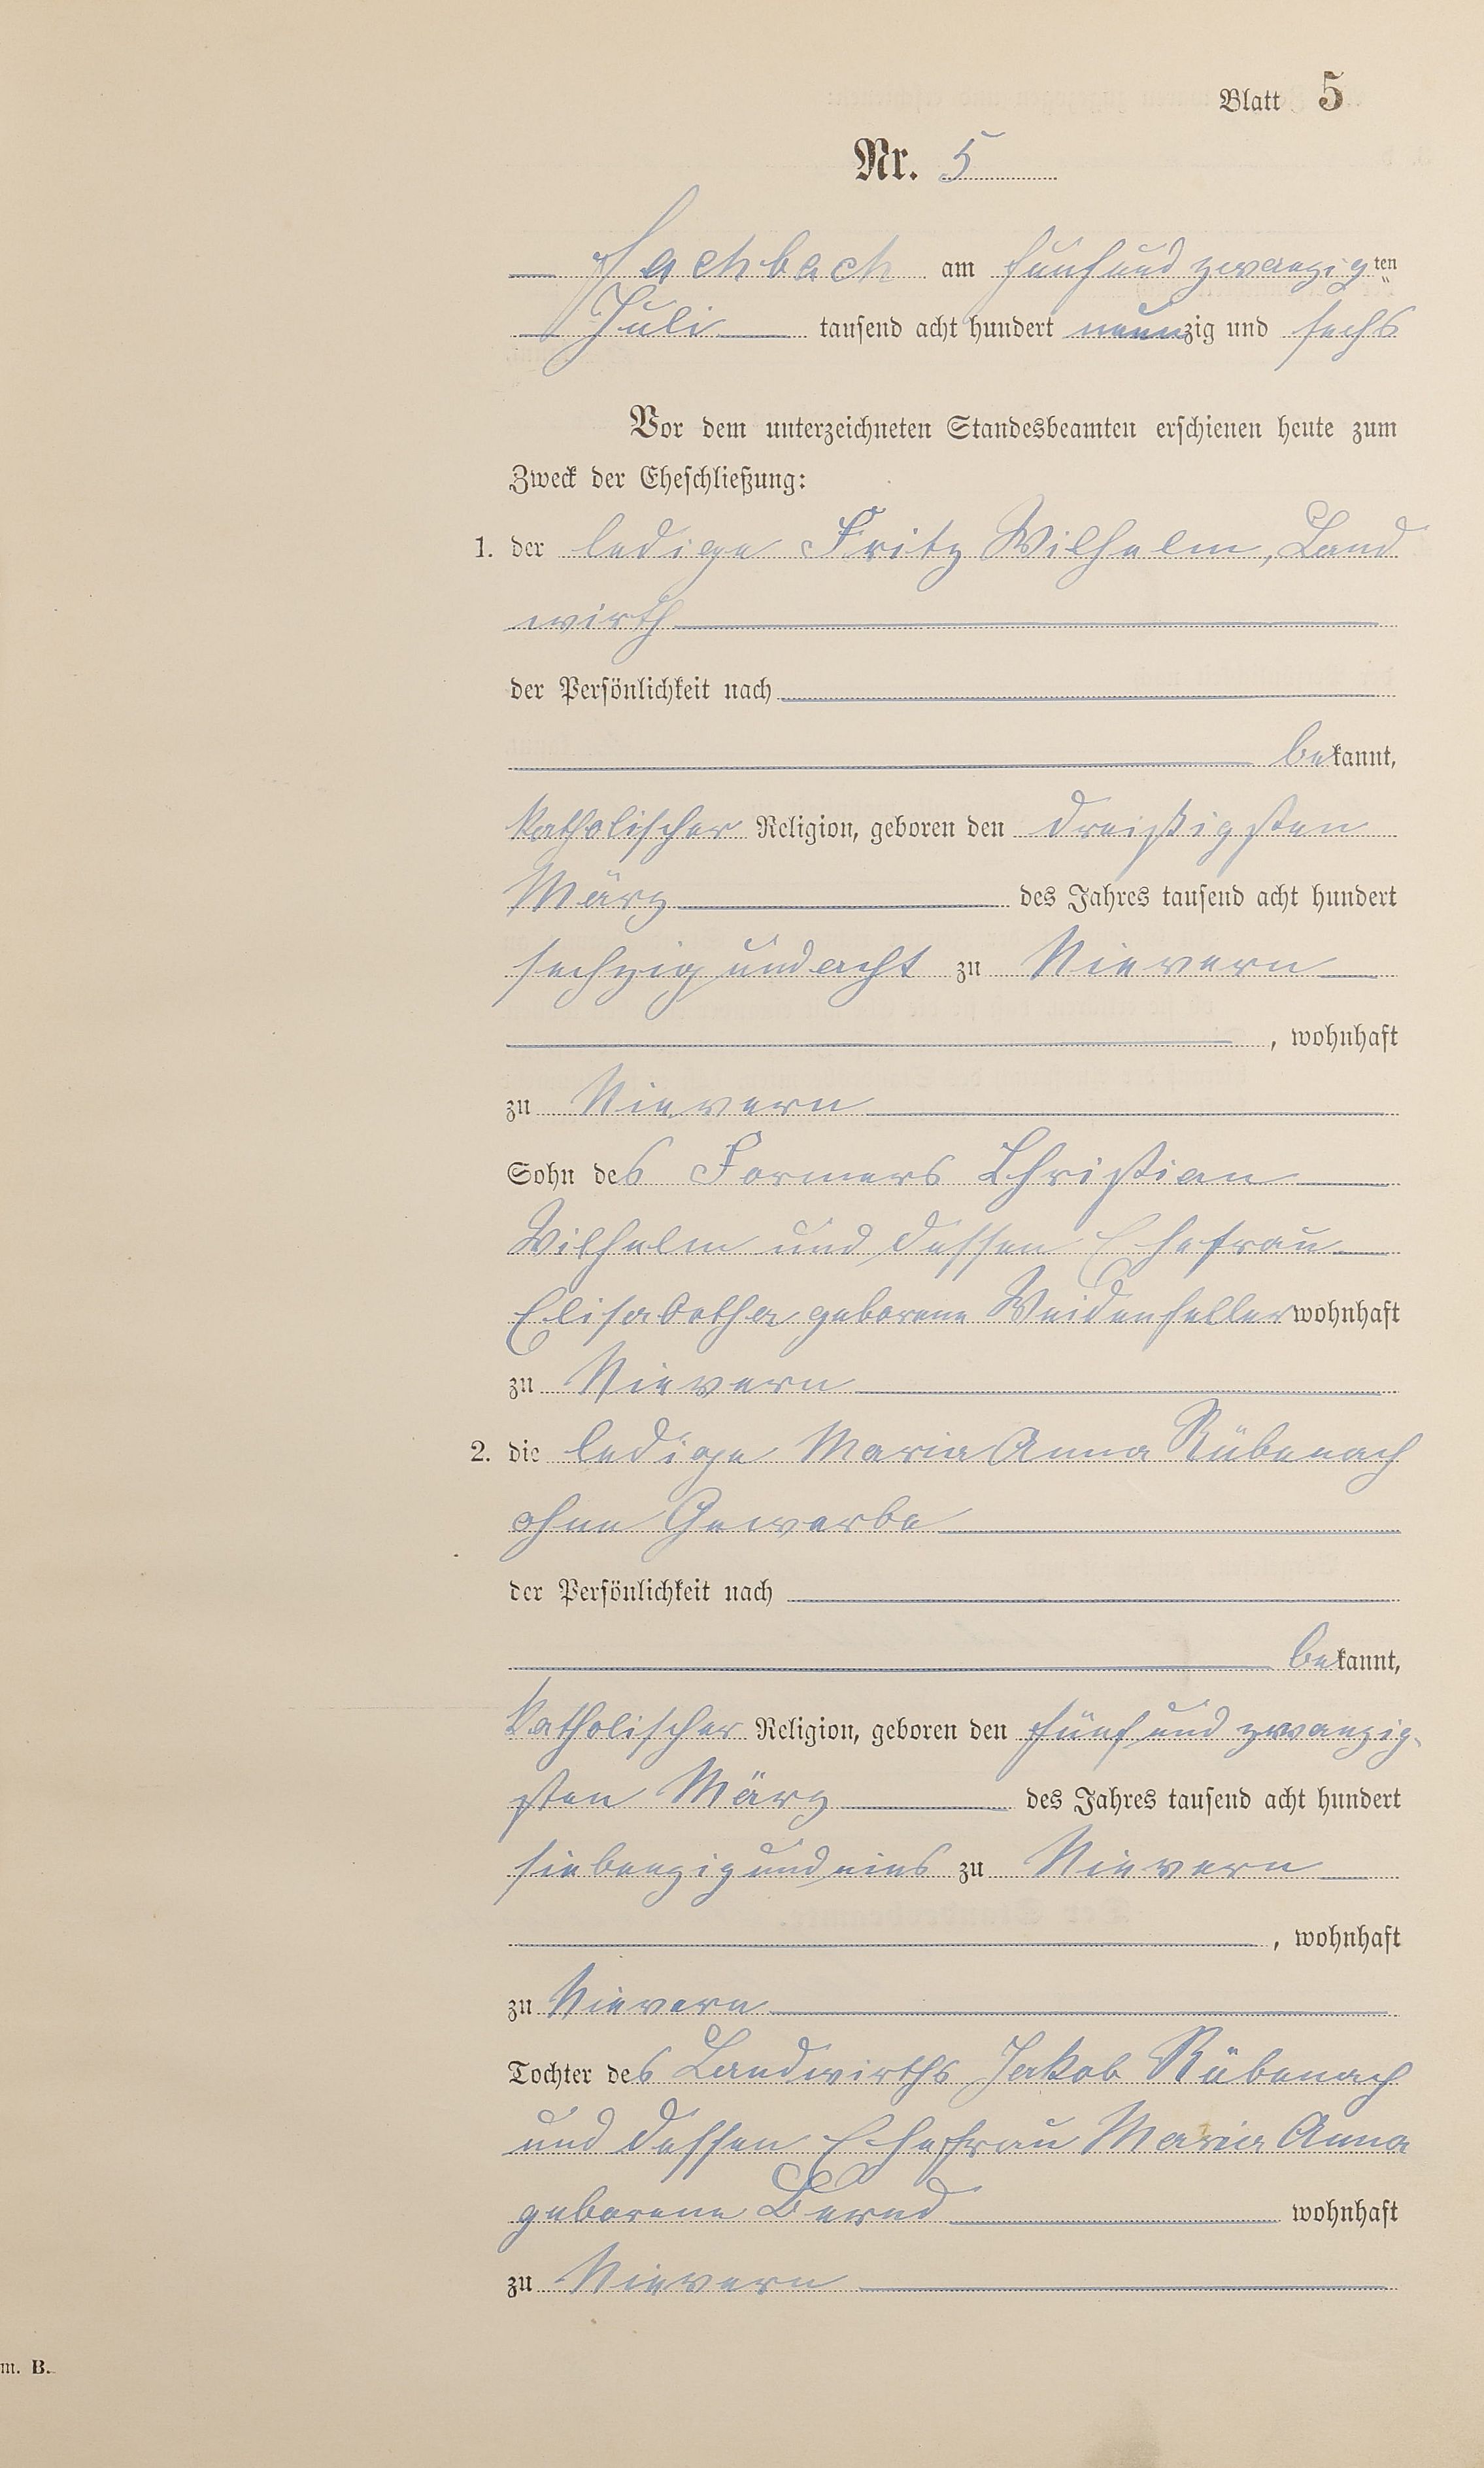 Blatt 5
Nr. 5
Fachbach am fünfundzwanzigten
Juli tausend acht hundert neunzig und sechs
Vor dem unterzeichneten Standesbeamten erschienen heute zum
Zweck der Eheschließung:
1. der ledige Fritz Wilhelm, Land
wirth
der Persönlichkeit nach
bekannt,
katholischer Religion, geboren den dreißigsten
März des Jahres tausend acht hundert
sechzig und acht zu Nievern
, wohnhaft
zu Nievern
Sohn des Formers Christian
Wilhelm und dessen Ehefrau
Elisabetha geborene Weidenfeller wohnhaft
zu Nievern
2. die ledige Maria Anna Rübenach
ohne Gewerbe
der Persönlichkeit nach
bekannt,
katholischer Religion, geboren den fünfundzwanzig-
sten März des Jahres tausend acht hundert
siebenzig und eins zu Nievern
, wohnhaft
zu Nievern
Tochter des Landwirths Jakob Rübenach
und dessen Ehefrau Maria Anna
geborene Bernd wohnhaft
zu Nievern
m. B.